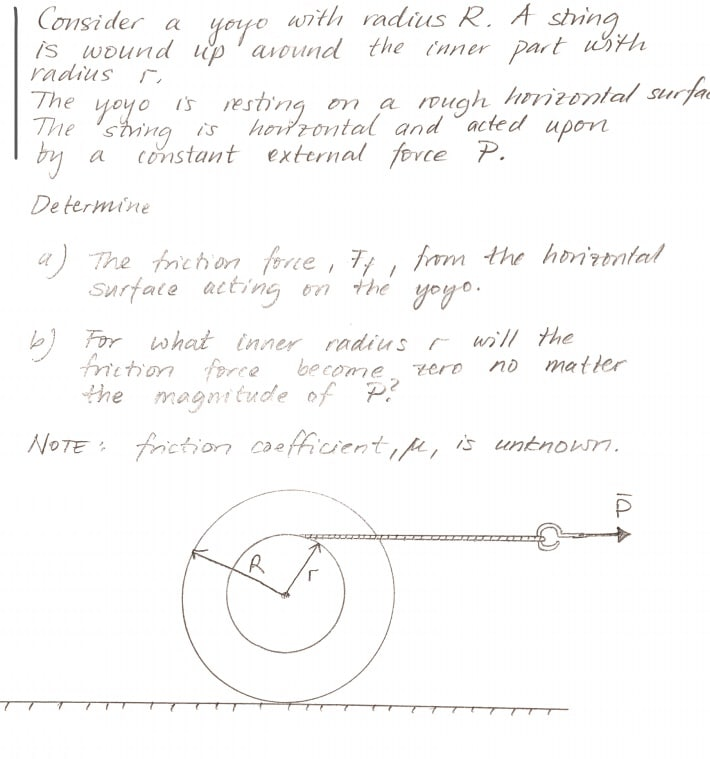 Consider a yoyo with radius R. A string
is wound up around the inner part with
radius r.
The yoyo is resting on a rough horizontal surfac
The string is horizontal and acted upon
by a constant external force P.
Determine
a) The friction force, Ff, from the horizontal
surface acting on the yoyo.
b) For what inner radius r will the
friction force become zero no matter
the magnitude of P?
NOTE: friction coefficient, μ, is unknown.
P̄
R
r